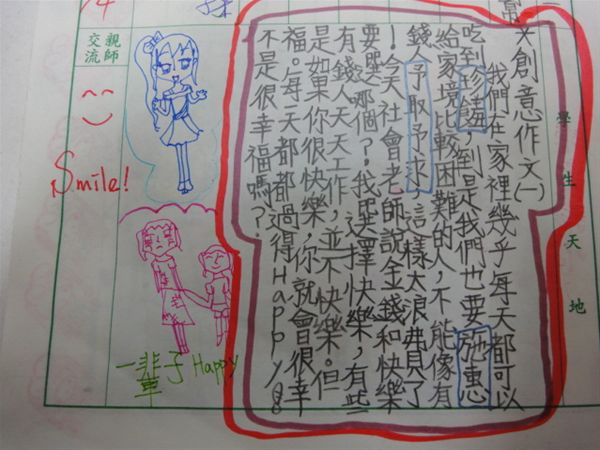 常×創意作文(一)
我們在家裡幾乎每天都可以
吃到珍饈,到是我們也要施惠
給家境比較困難的人,不能像有
錢人予取予求,這樣太浪費了
!今天社會老師說金錢和快樂
要選哪個?我選擇快樂,有些
有錢人天天工作,並不快樂。但
是如果你很快樂,你就會很幸
福。每一天都都過得Happy@
不是很幸福嗎?
學生天地
親師
交流
Smile!
一輩子Happy